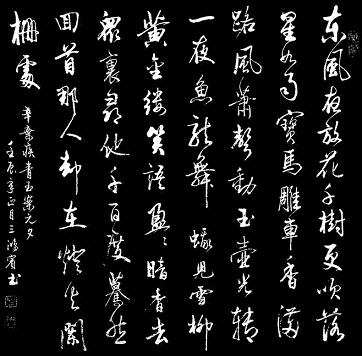 東風夜放花千樹更吹落
星如雨寶馬雕車香滿
路鳳簫聲動玉壺光轉
一夜魚龍舞蛾兒雪柳
黃金縷笑語盈盈暗香去
眾裏尋他千百度驀然
回首那人却在燈火闌
珊處
辛棄疾青玉案元夕
壬辰年正月